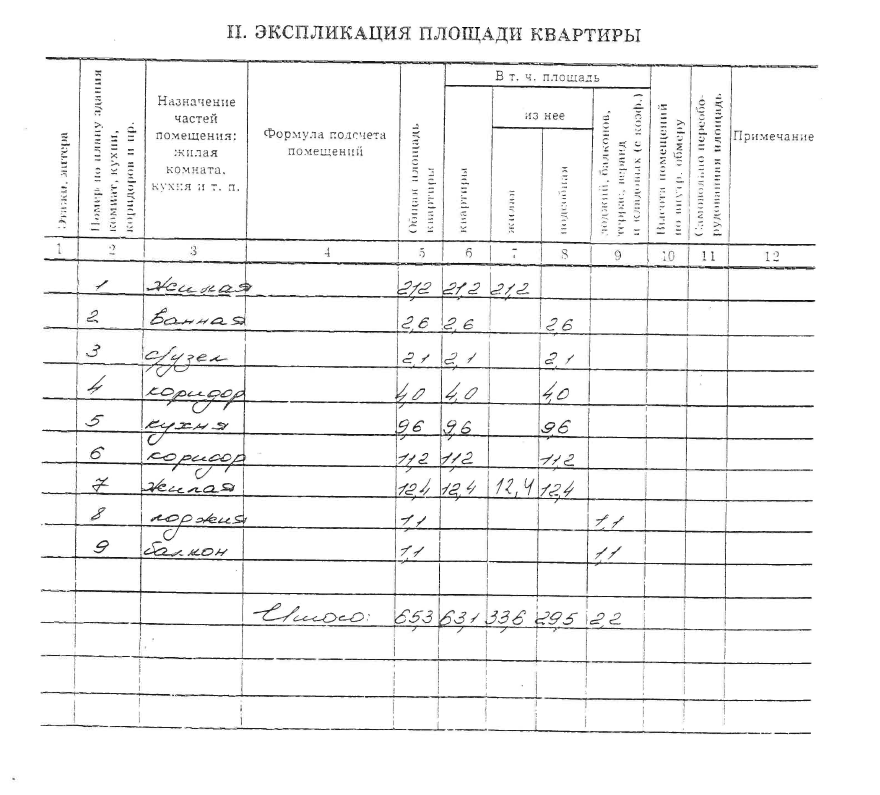 II. ЭКСПЛИКАЦИЯ ПЛОЩАДИ КВАРТИРЫ
Этажи, литера
Номер по плану здания комнат, кухни, коридоров и пр.
Назначение частей помещения: жилая комната, кухня и т. п.
Формула подсчета помещений
Общая площадь квартиры
В т. ч. площадь
квартиры
из нее
жилая
подсобная
лоджий, балконов, террас, веранд и кладовых (с коэф.)
Высота помещений по внутр. обмеру
Самовольно переоборудованная площадь
Примечание
1 2 3 4 5 6 7 8 9 10 11 12
1 Жилая 21,2 21,2 21,2
2 Ванная 2,6 2,6 2,6
3 с/узел 2,1 2,1 2,1
4 коридор 4,0 4,0 4,0
5 кухня 9,6 9,6 9,6
6 коридор 11,2 11,2 11,2
7 жилая 12,4 12,4 12,4 12,4
8 лоджия 1,1 1,1
9 балкон 1,1 1,1
Итого: 65,3 63,1 33,6 29,5 2,2